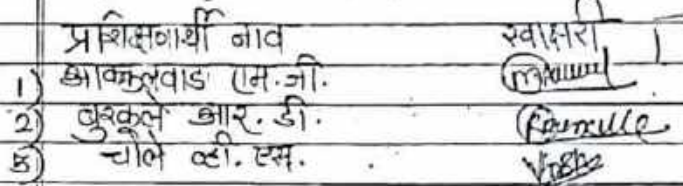 प्रशिक्षणार्थी नाव स्वाक्षरी
1) आक्कलवाड एम.जी.
2) बुरकुले आर. डी.
3) चोले व्ही. एस.